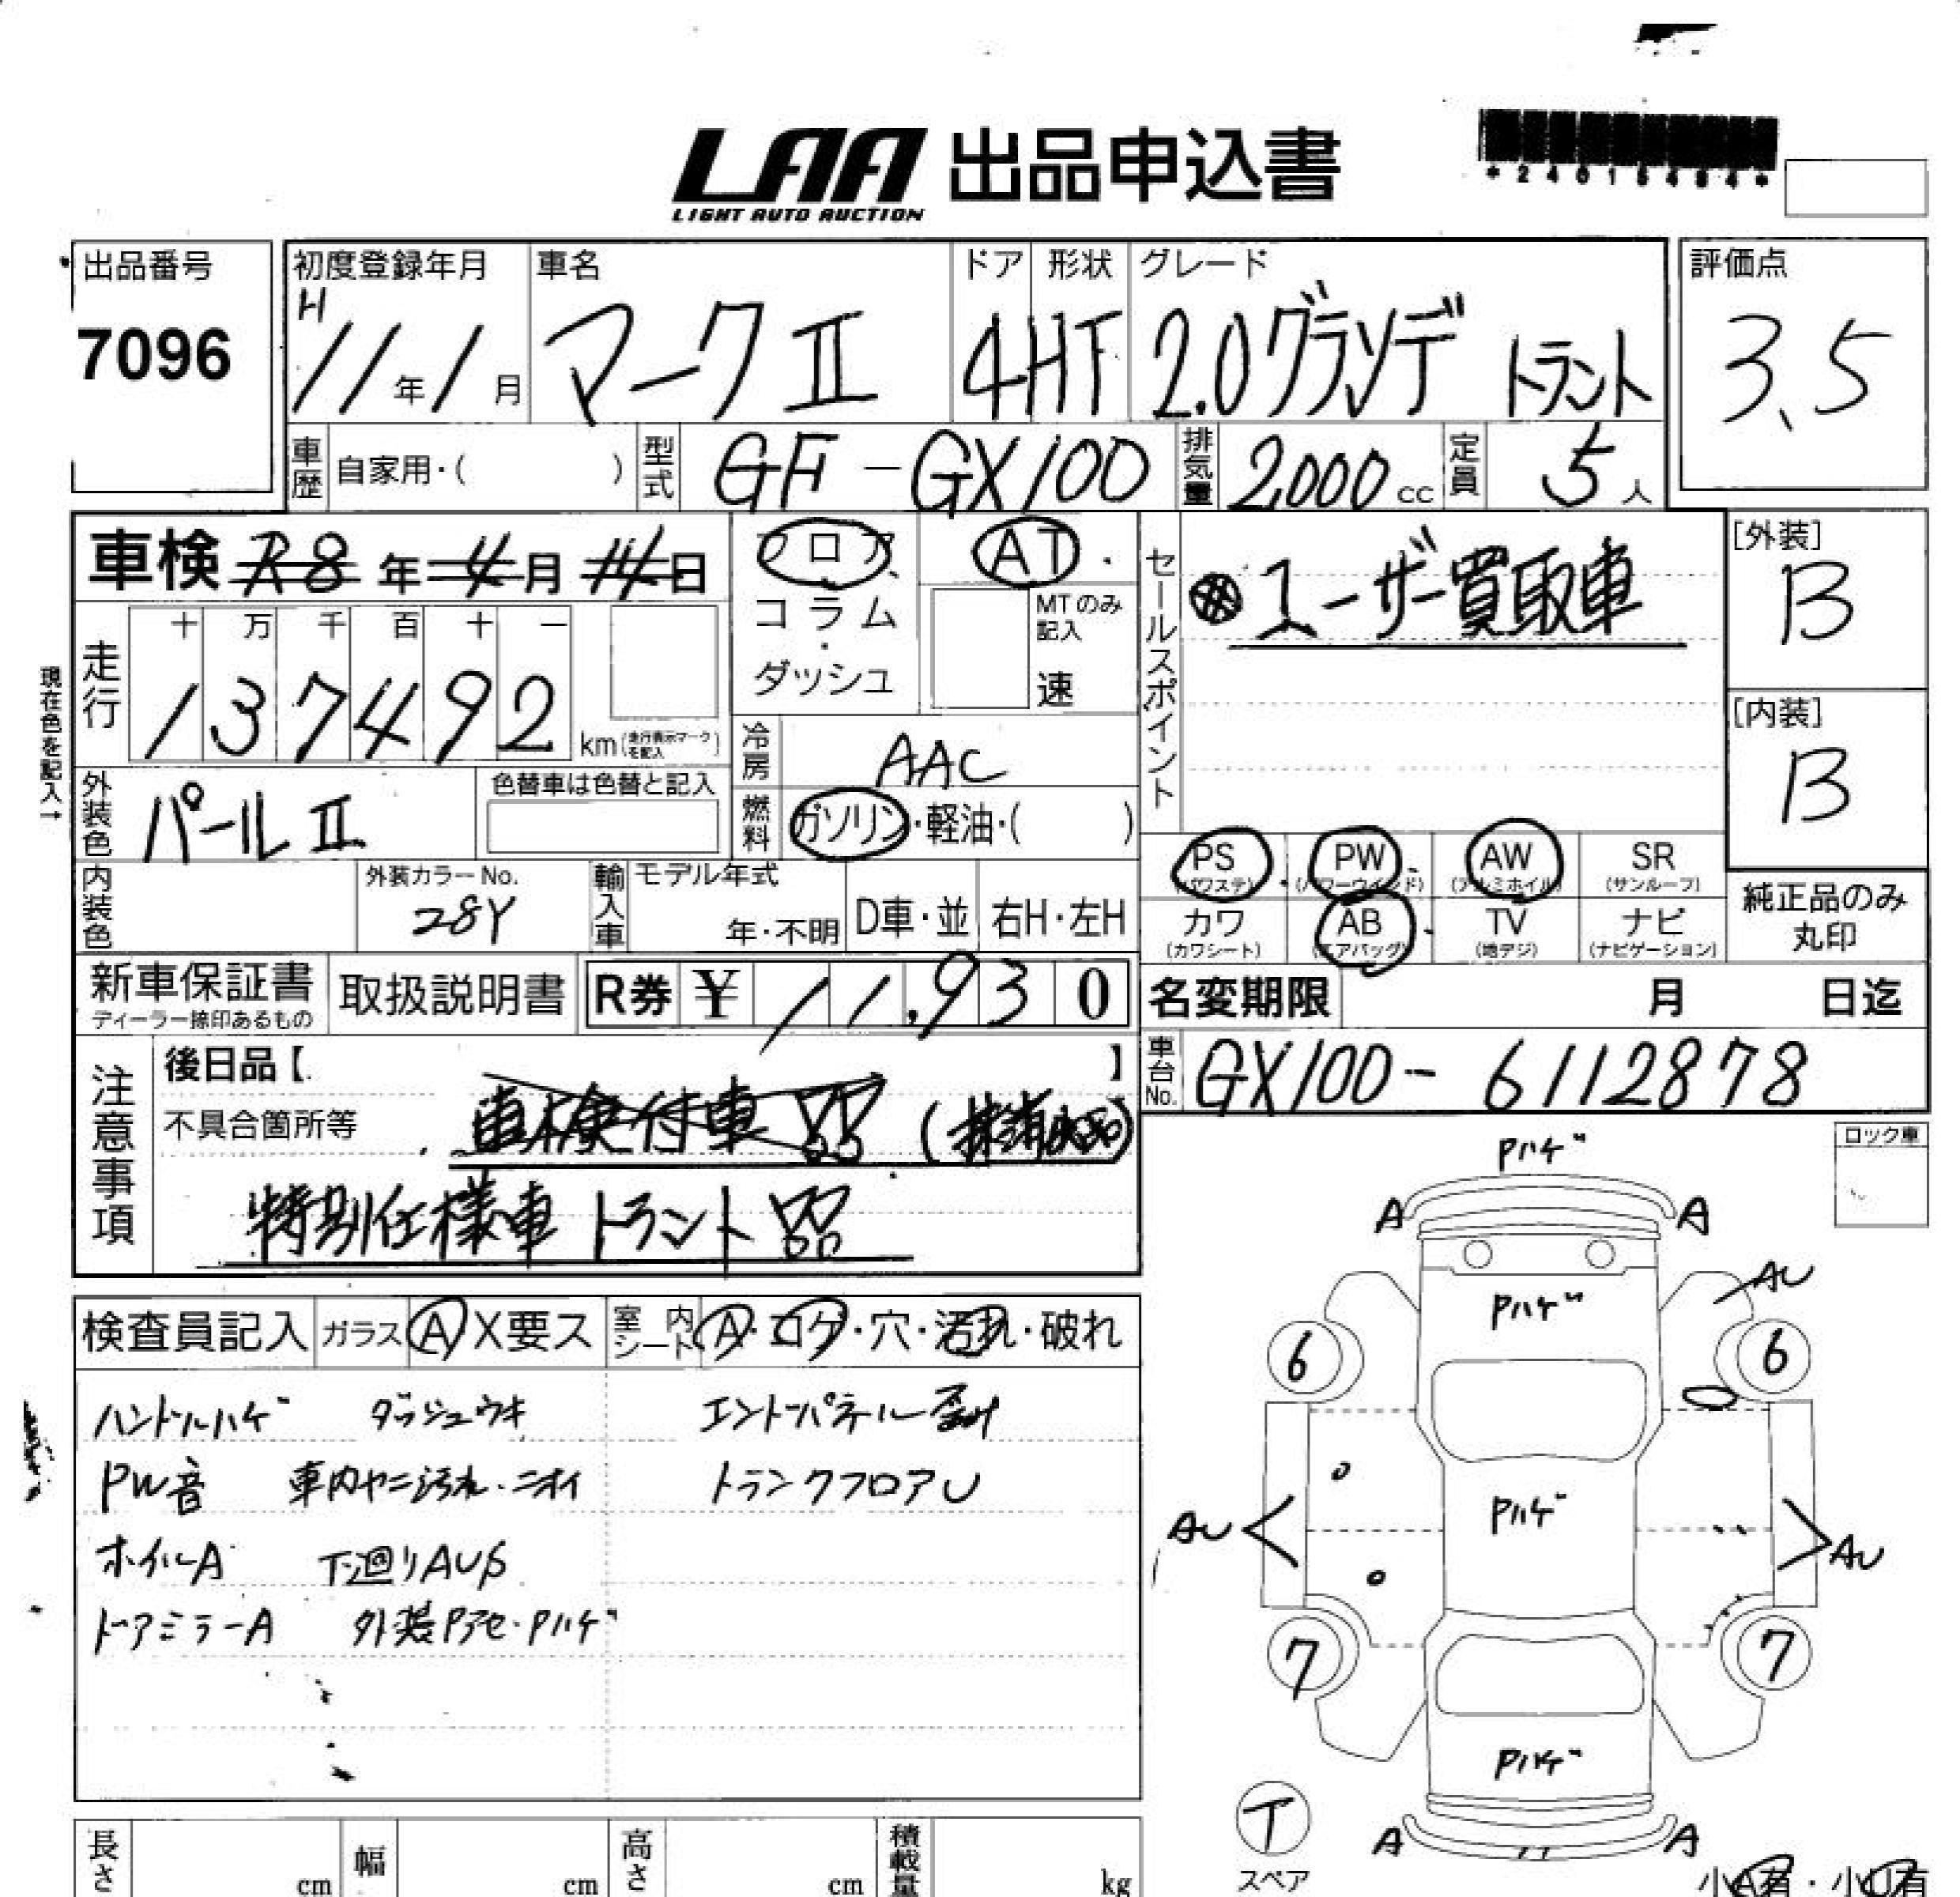 LAA 出品申込書
LIGHT AUTO AUCTION
*24015484*
出品番号
7096
初度登録年月
H11年1月
車名
マークⅡ
ドア 形状
4HT
グレード
2.0グランデ トラント
評価点
3.5
車歴 自家用・( )
型式 GF-GX100
排気量 2,000cc
定員 5人
車検 R8年4月14日
フロア
コラム
・
ダッシュ
AT・
MTのみ記入
速
セールスポイント
※ユーザー買取車
[外装]
B
[内装]
B
現在色を記入→
走行
十万千百十一
137492 km(走行表示マークを記入)
冷房 AAC
燃料 ガソリン・軽油・( )
外装色 パールⅡ
色替車は色替と記入
内装色
外装カラーNo.
28Y
輸入車
モデル年式
年・不明
D車・並
右H・左H
PS (パワステ)
PW (パワーウインド)
AW (アルミホイル)
SR (サンルーフ)
カワ (カワシート)
AB (エアバッグ)
TV (地デジ)
ナビ (ナビゲーション)
純正品のみ
丸印
新車保証書
ディーラー捺印あるもの
取扱説明書
R券 ¥11,930
名変期限 月 日迄
車台No. GX100-6112878
注意事項
後日品【 】
不具合箇所等
車検付車
特別仕様車 トラント
ロック車
検査員記入
ガラス A X要ス
室内シート A・コゲ・穴・汚れ・破れ
ハンドルハゲ ダッシュウキ エンドパネル歪み
PW音 車内ヤニ汚れ・ニオイ トランクフロアU
ホイルA 下廻りAUS
ドアミラーA 外装Pアセ・Pハゲ
Pハゲ
A A
Pハゲ
AU
6 6
Pハゲ
AU AU
7 7
Pハゲ
A A
T
スペア
小A有・小U有
長さ cm
幅 cm
高さ cm
積載量 kg